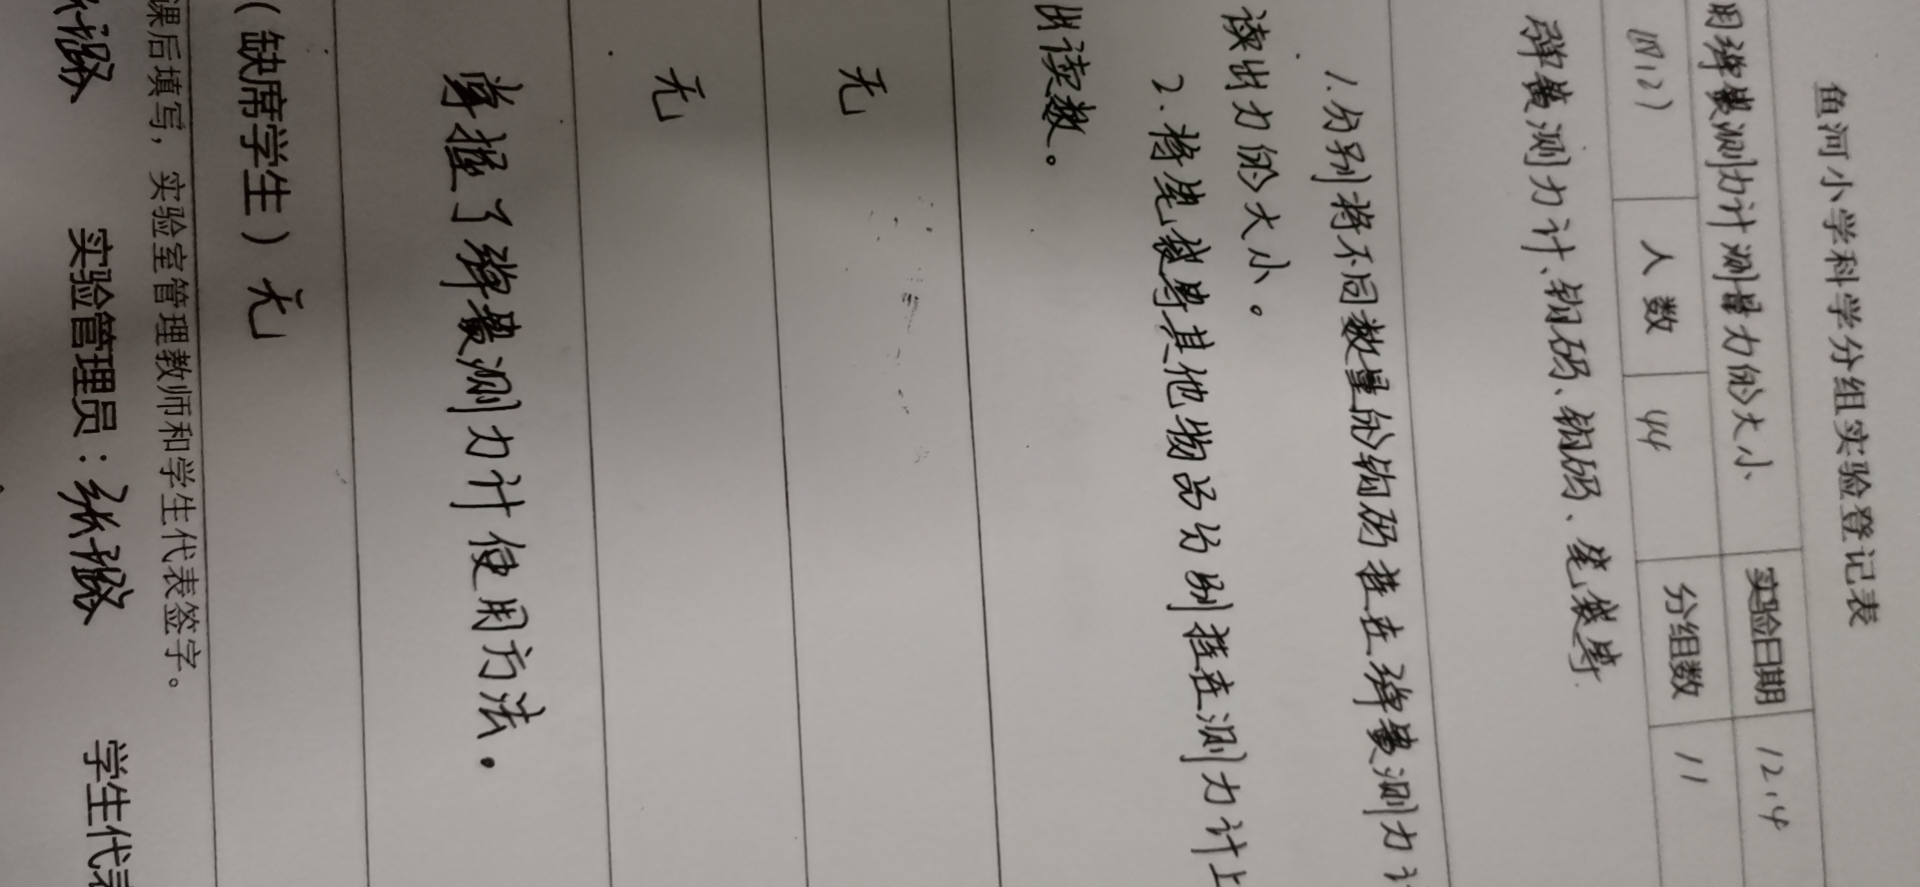 鱼河小学科学分组实验登记表
用弹簧测力计测量力的大小 实验日期 12.4
四(2) 人数 44 分组数 11
弹簧测力计、钩码、钩码、笔袋等
1.分别将不同数量的钩码挂在弹簧测力计
读出力的大小。
2.将笔袋等其他物品分别挂在测力计上
出读数。
无
无
掌握了弹簧测力计使用方法.
(缺席学生)无
课后填写，实验室管理教师和学生代表签字。
实验管理员：张 学生代表